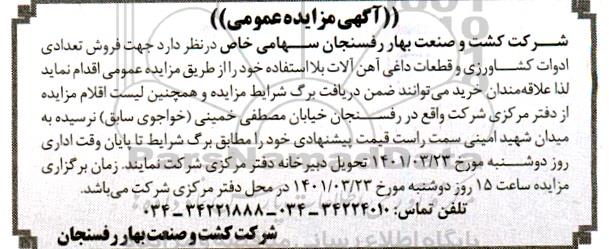 ((آگهی مزایده عمومی))
شرکت کشت و صنعت بهار رفسنجان سهامی خاص در نظر دارد جهت فروش تعدادی
ادوات کشاورزی و قطعات داغی آهن آلات بلااستفاده خود را از طریق مزایده عمومی اقدام نماید
لذا علاقه‌مندان خرید می‌توانند ضمن دریافت برگ شرایط مزایده و همچنین لیست اقلام مزایده
از دفتر مرکزی شرکت واقع در رفسنجان خیابان مصطفی خمینی (خواجوی سابق) نرسیده به
میدان شهید امینی سمت راست قیمت پیشنهادی خود را مطابق برگ شرایط تا پایان وقت اداری
روز دوشنبه مورخ ۱۴۰۱/۰۳/۲۳ تحویل دبیرخانه دفتر مرکزی شرکت نمایند. زمان برگزاری
مزایده ساعت ۱۵ روز دوشنبه مورخ ۱۴۰۱/۰۳/۲۳ در محل دفتر مرکزی شرکت می‌باشد.
تلفن تماس: ۳۴۲۲۴۰۱۰-۰۳۴ - ۳۴۲۲۱۸۸۸-۰۳۴
شرکت کشت و صنعت بهار رفسنجان